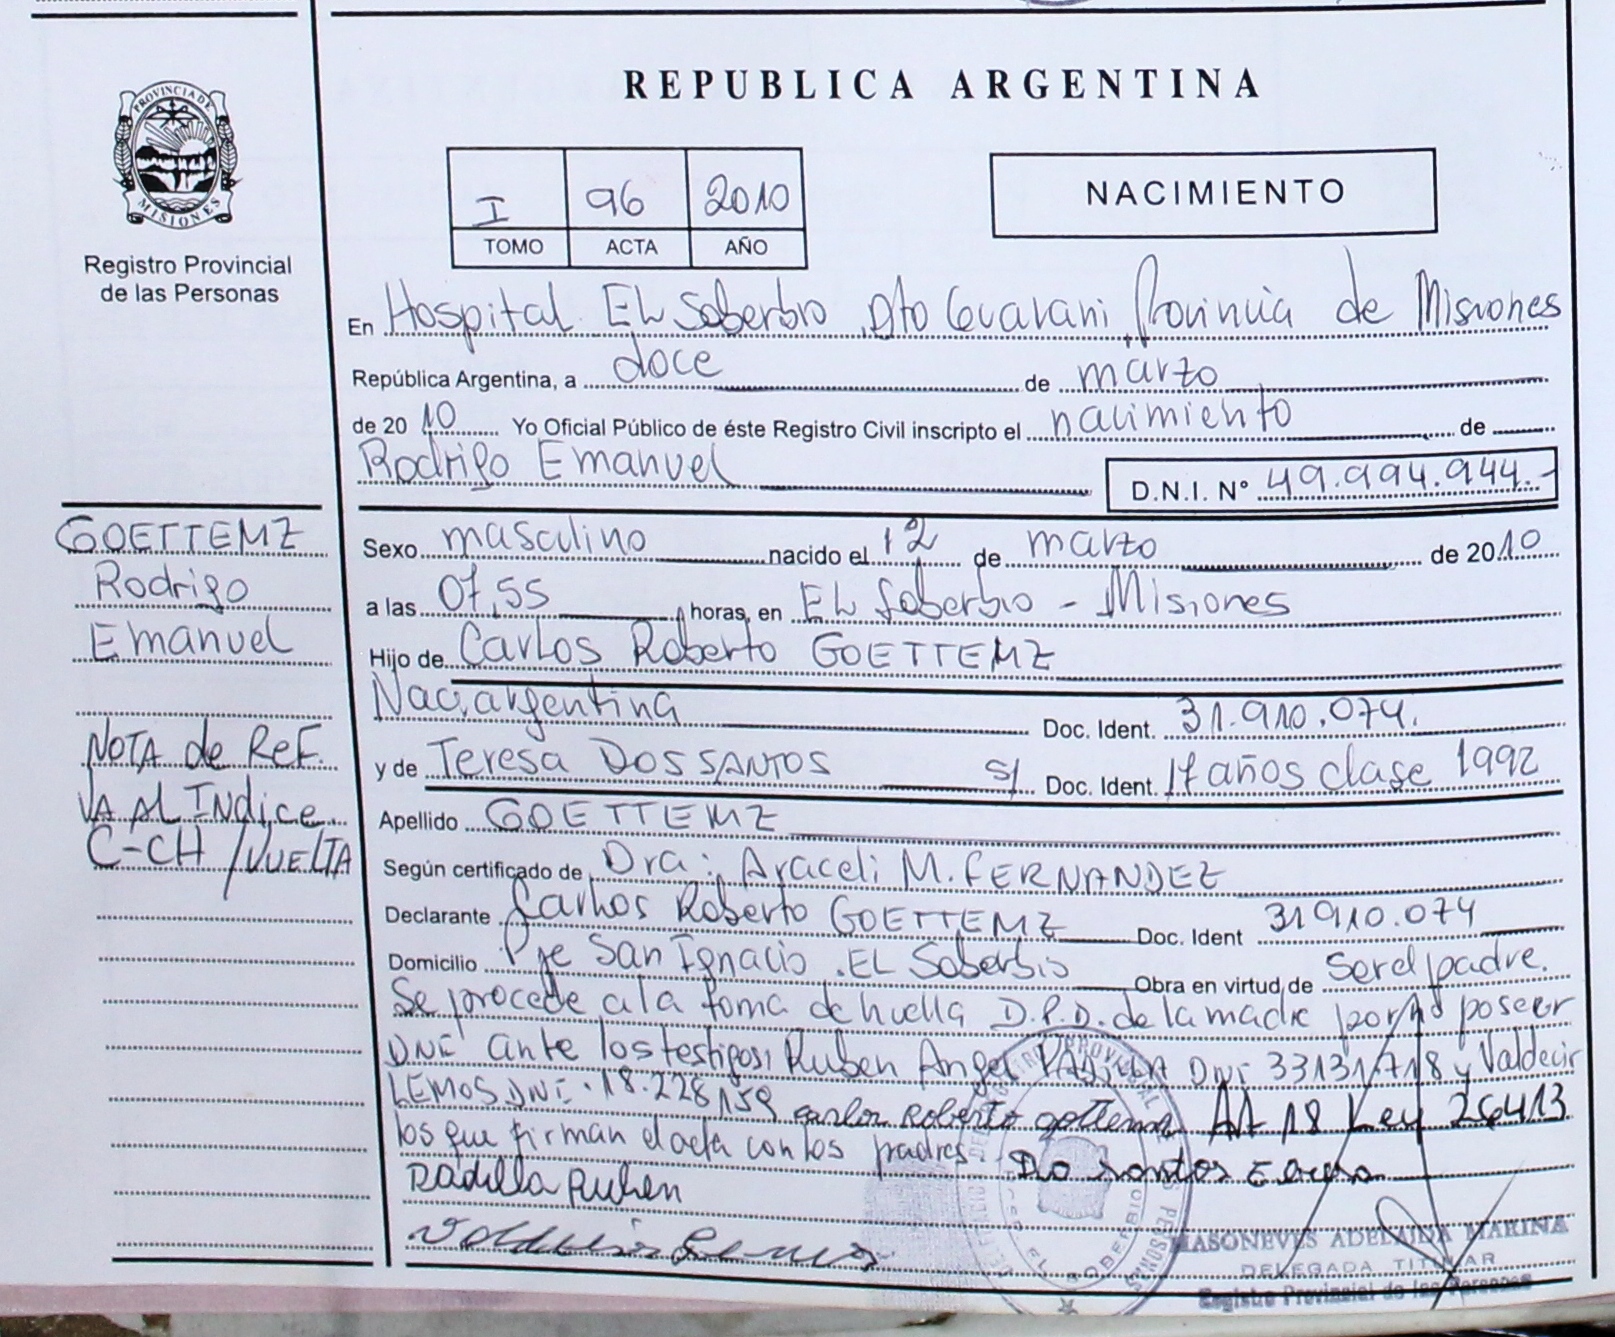 REPUBLICA ARGENTINA
PROVINCIA DE
MISIONES
Registro Provincial
de las Personas
I 96 2010
TOMO ACTA AÑO
NACIMIENTO
En Hospital EL Soberbio Dto Guarani Provincia de Misiones
República Argentina, a doce de marzo
de 2010 Yo Oficial Público de éste Registro Civil inscripto el nacimiento de
Rodrigo Emanuel D.N.I. Nº 49.994.944.-
GOETTEMZ
Rodrigo
Emanuel
NOTA de ReF.
VA AL INdice
C-CH /VUELTA
Sexo masculino nacido el 12 de marzo de 2010
a las 07,55 horas, en EL Soberbio - Misiones
Hijo de Carlos Roberto GOETTEMZ
Nac. argentina Doc. Ident. 31.910.074.
y de Teresa DOS SANTOS S/ Doc. Ident. 17 años clase 1992
Apellido GOETTEMZ
Según certificado de Dra: Araceli M. FERNANDEZ
Declarante Carlos Roberto GOETTEMZ Doc. Ident 31910.074
Domicilio Pje San Ignacio. EL Soberbio Obra en virtud de Ser el padre.
Se procede a la toma de huella D.P.D. de la madre por no poseer
DNI ante los testigos, Ruben Angel PADILLA DNI 33131718 y Valdecir
LEMOS DNI. 18.228.159 carlos Roberto gottems Art 18 Ley 26413
los que firman el acta con los padres. Do santos
Padilla Ruben
MASONEVES ADELAIDA MARINA
DELEGADA TITULAR
Registro Provincial de las Personas
EL SOBERBIO